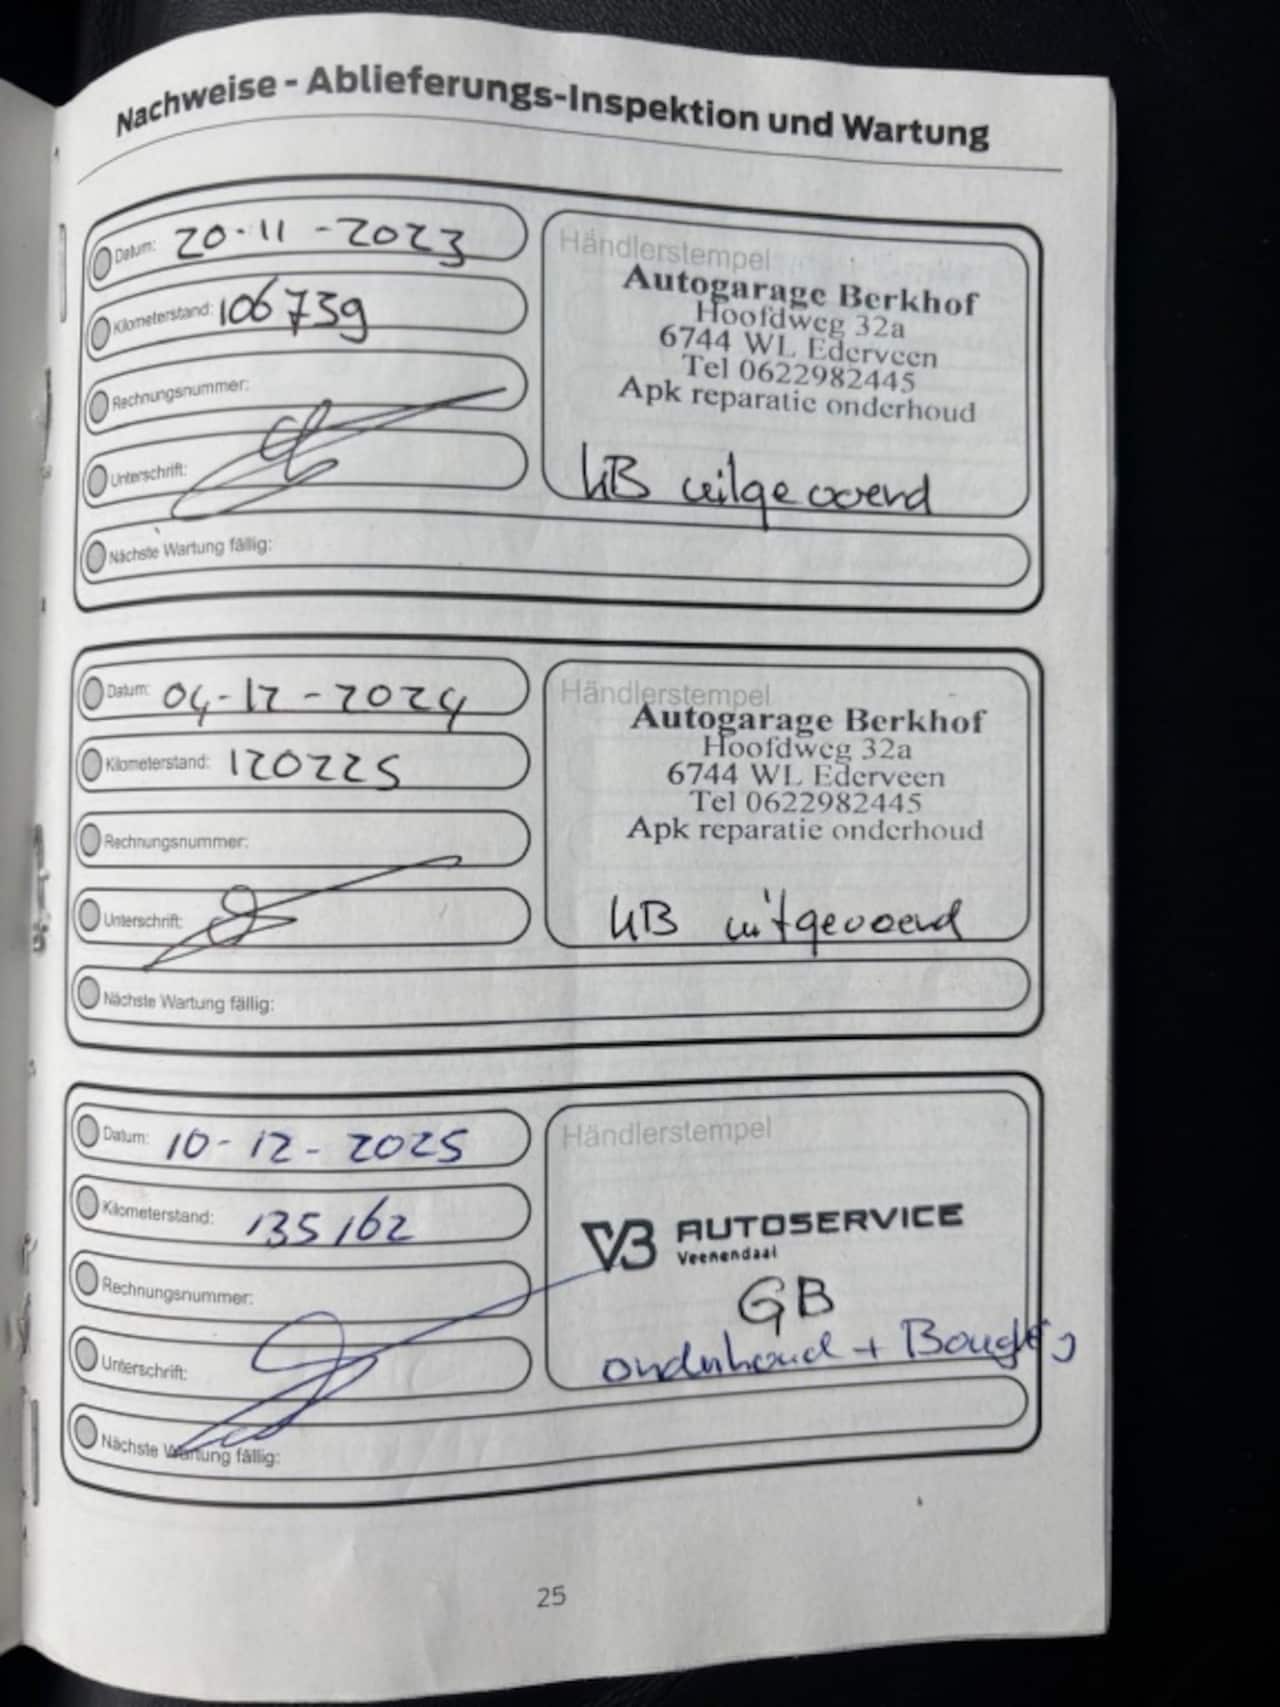 Nachweise - Ablieferungs-Inspektion und Wartung
Datum: 20-11-2023
Kilometerstand: 106739
Rechnungsnummer:
Unterschrift:
Nächste Wartung fällig:
Händlerstempel
Autogarage Berkhof
Hoofdweg 32a
6744 WL Ederveen
Tel 0622982445
Apk reparatie onderhoud
KB uitgevoerd
Datum: 04-12-2024
Kilometerstand: 120225
Rechnungsnummer:
Unterschrift:
Nächste Wartung fällig:
Händlerstempel
Autogarage Berkhof
Hoofdweg 32a
6744 WL Ederveen
Tel 0622982445
Apk reparatie onderhoud
KB uitgevoerd
Datum: 10-12-2025
Kilometerstand: 135162
Rechnungsnummer:
Unterschrift:
Nächste Wartung fällig:
Händlerstempel
VB AUTOSERVICE
Veenendaal
GB
onderhoud +
25